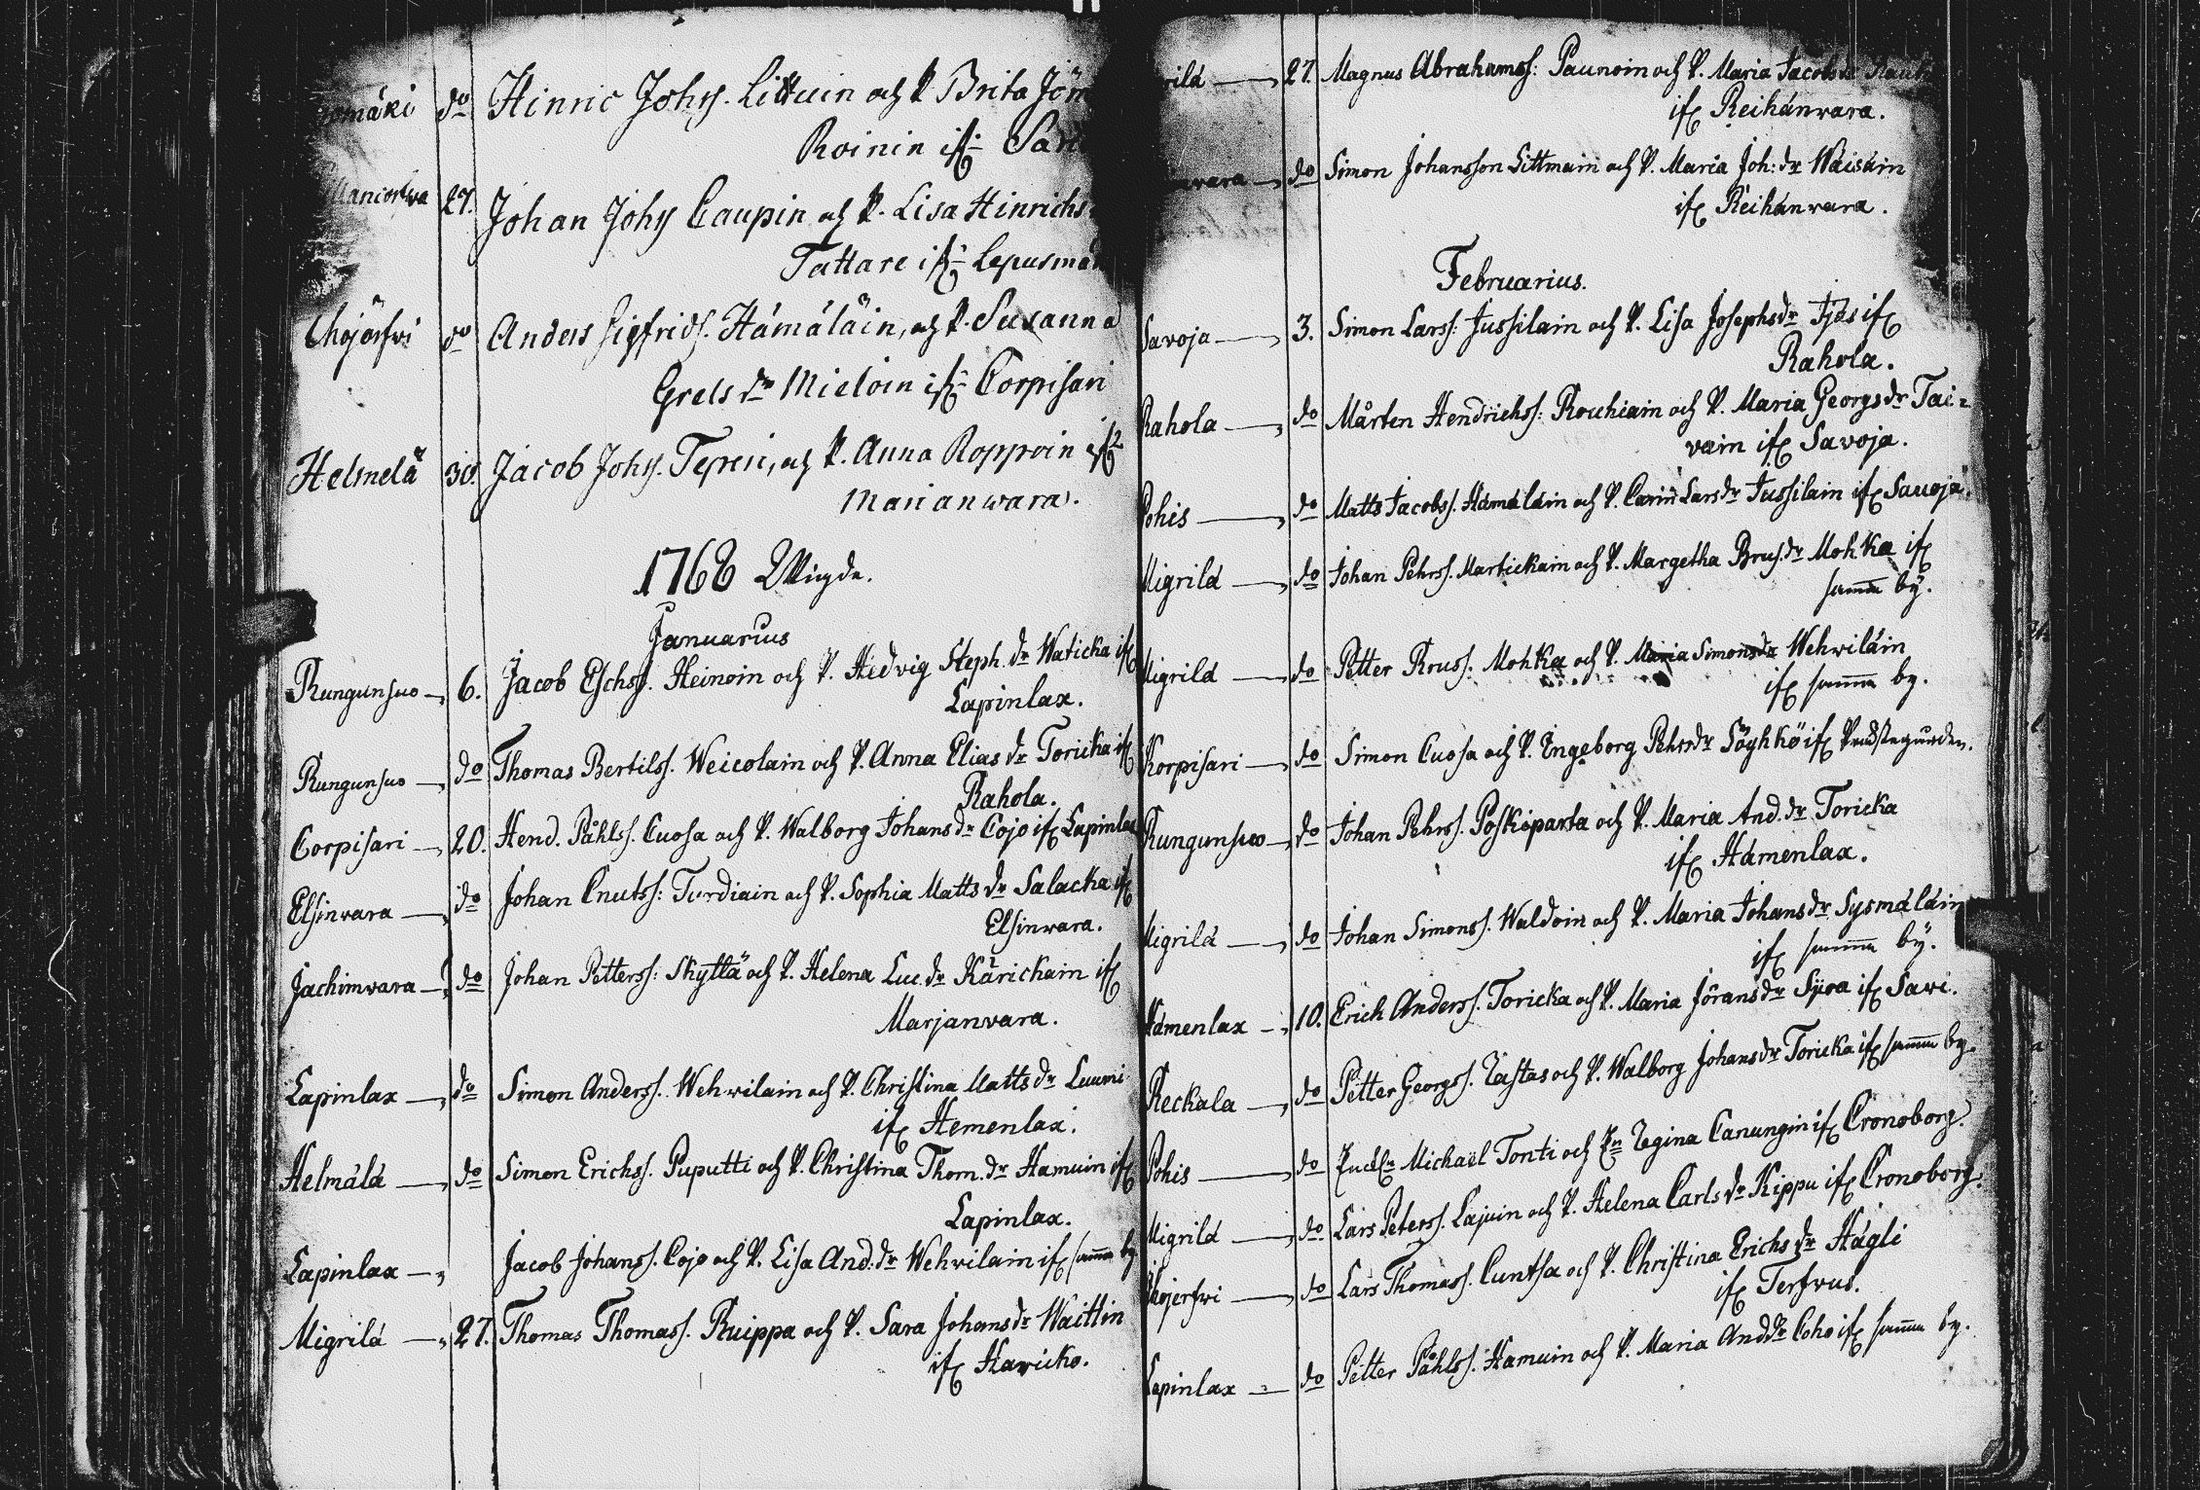 mäki do Hinric Johs. Littuin och P. Brita Jör
Roinin ifr. Sav
27. Johan Johs Caupin och P. Lisa Hinrichs
Tattare ifr. Lepusmä
Chojörfvi do Anders Sigfrids. Hämäläin, och P. Susanna
Grels dr Mieloin ifr. Corpisari
Helmelä 30. Jacob Johs. Tepein, och P. Anna Roppoin ifr.
Marianwara.
1768 Wigde.
Januarius
Rungunsuo 6. Jacob Eschss. Heinoin och P. Hedvig Steph. dr Waticka ifr.
Lapinlax.
Rungunsuo do Thomas Bertilss. Weicolain och P. Anna Elias dr Toricka ifr.
Rahola.
Corpisari 20. Hend. Påhlss. Cuosa och P. Walborg Johans dr Cojo ifr. Lapinlax
Elsinvara do Johan Cnutss: Turdiain och P. Sophia Matts dr Salacka ifr.
Elsinvara.
Jachimvara do Johan Petterss: Skyttä och P. Helena Luc. dr Kärickain ifr.
Marjanvara.
Lapinlax do Simon Anderss. Wehvilain och P. Christina Matts dr Luumi
ifr. Hemenlax.
Helmälä do Simon Erichss. Puputti och P. Christina Thom. dr Hamuin ifr.
Lapinlax.
Lapinlax Jacob Johanss. Cojo och P. Lisa And: dr Wehvilain ifr. samma by
Migrilä 27. Thomas Thomass. Ruippa och P. Sara Johans dr Waittin
ifr. Haricko.
rilä 27. Magnus Abrahamss: Paunoin och P. Maria Jacobs dr
ifr. Reihänvara.
vara do Simon Johansson Littmain och P. Maria Joh: dr Wäisäin
ifr. Reihänvara.
Februarius.
Savoja 3. Simon Larss: Jussilain och P. Lisa Josephs dr Ijäs ifr.
Rahola.
Rahola do Mårten Hendrichss: Rouhiain och P. Maria Georgs dr Tai=
vain ifr. Savoja.
Pohis do Matts Jacobss. Hämäläin och P. Carin Lars dr Jussilain ifr. Savoja.
Migrilä do Johan Pehrss. Martickain och P. Margetha Brus. dr Mohka ifr.
samma by.
Migrilä do Petter Bruss: Mohka och P. Maria Simons dr Wehviläin
ifr. samma by.
Korpisari do Simon Cuosa och P. Ingeborg Pehrs dr Söykkö ifr. Prästegården.
Rungunsuo do Johan Pehrss. Poskiparta och P. Maria And. dr Toricka
ifr. Hämenlax.
Migrilä do Johan Simonss. Waldoin och P. Maria Johans dr Sysmäläin
ifr. samma by.
Hämenlax 10. Erich Anderss. Toricka och P. Maria Jörans dr Syra ifr. Savi.
Reckala do Petter Georgss. Tastas och P. Walborg Johans dr Toricka ifr. samma by.
Pohis do Michaël Tonti och Regina Canungin ifr. Cronoborg.
Migrilä do Lars Peterss. Lajuin och P. Helena Carls dr Kippu ifr. Cronoborg.
Chojerfvi do Lars Thomass. Cuntsa och P. Christina Erichs dr Hägli
ifr. Terfvus.
Lapinlax do Petter Påhlss. Hamuin och P. Maria And. dr Coho ifr. samma by.